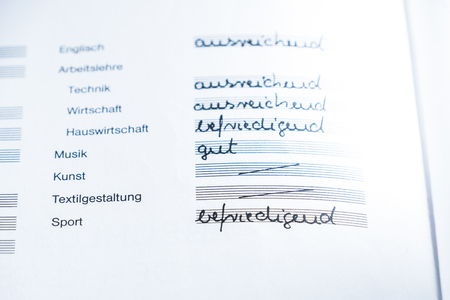 Englisch ausreichend
Arbeitslehre
Technik ausreichend
Wirtschaft ausreichend
Hauswirtschaft befriedigend
Musik gut
Kunst
Textilgestaltung
Sport befriedigend